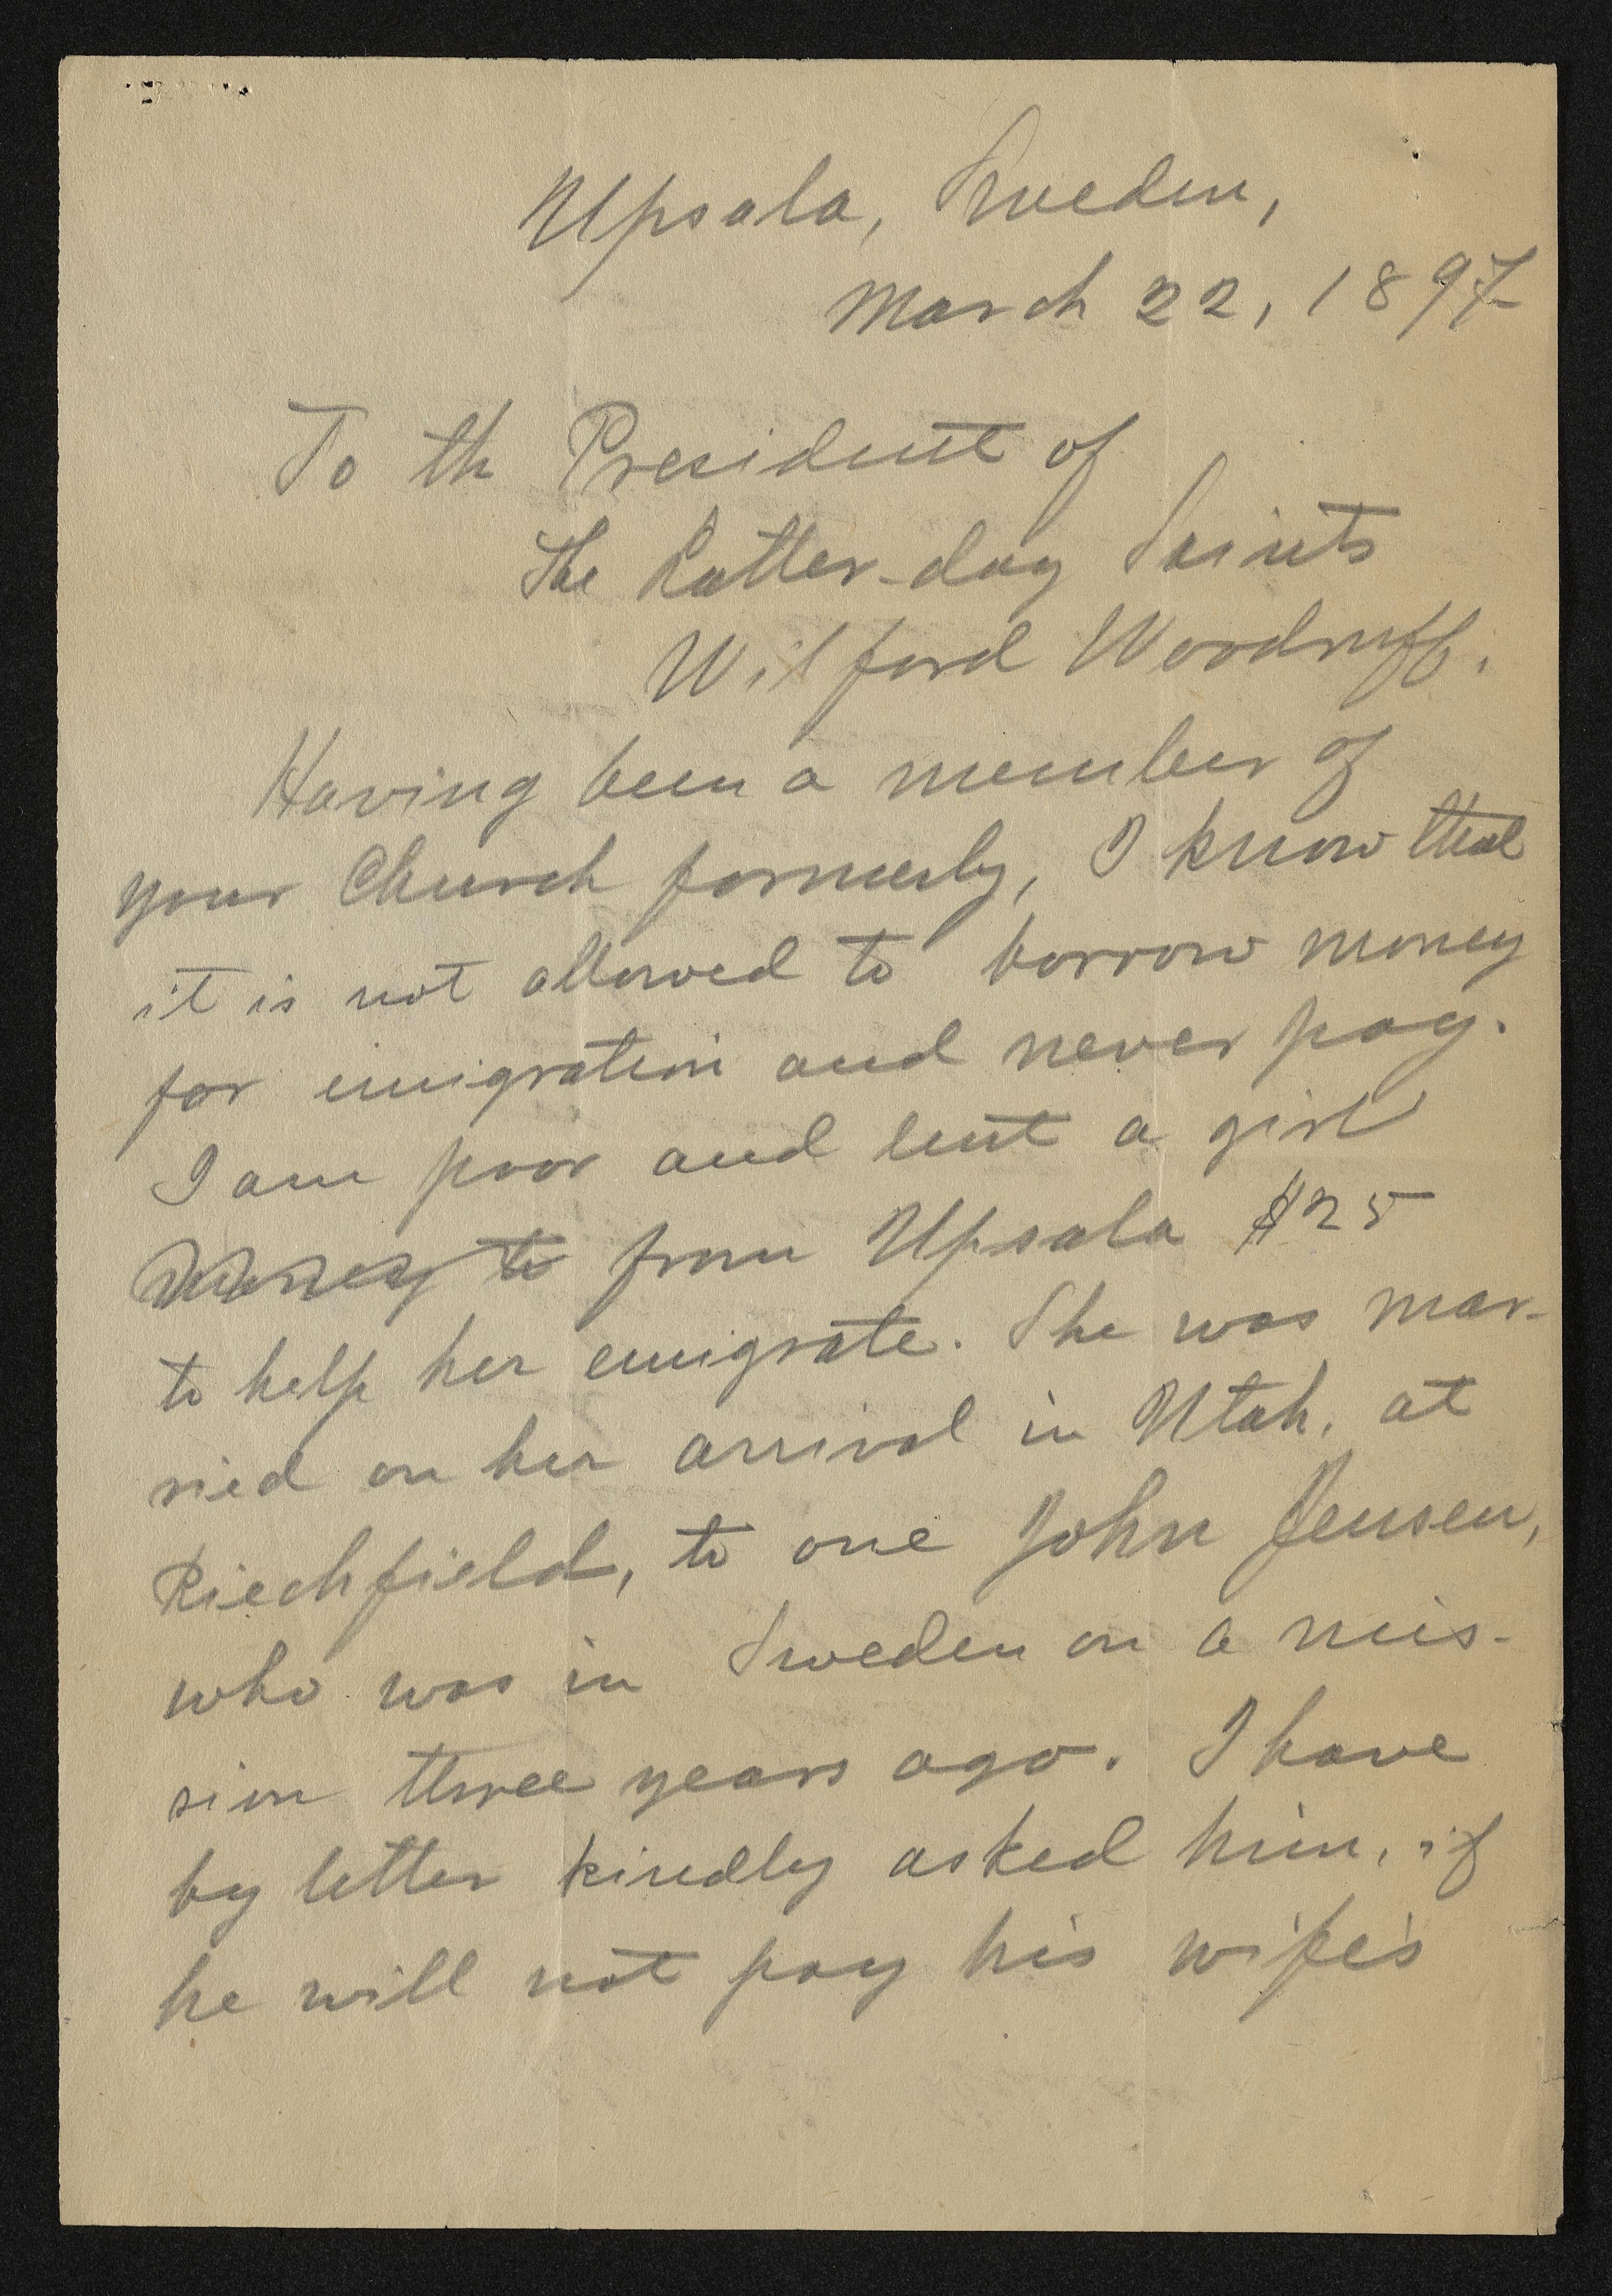 Upsala, Sweden,
March 22, 1897
To th President of
the Latter-day Saints
Wilford Woodruff.
Having been a member of
your Church formerly, I know that
it is not allowed to borrow money
for emigration and never pay.
I am poor and lent a girl
money to from Upsala $25
to help her emigrate. She was mar-
ried on her arrival in Utah, at
Riechfield, to one John Jensen,
who was in Sweden on a mis-
sion three years ago. I have
by letter kindly asked him, if
he will not pay his wife's